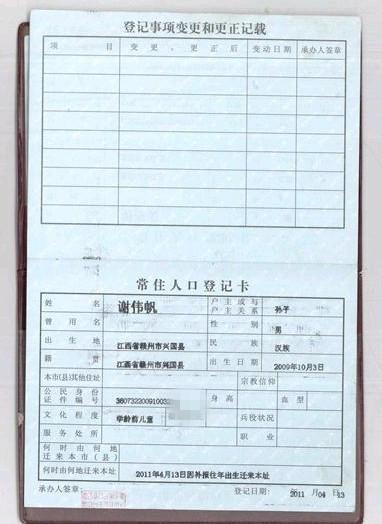 登记事项变更和更正记载
项 目 变更、更正后 变动日期 承办人签章
常住人口登记卡
姓名 谢伟帆 户主或与户主关系 孙子
曾用名 性别 男
出生地 江西省赣州市兴国县 民族 汉族
籍贯 江西省赣州市兴国县 出生日期 2009年10月3日
本市(县)其他住址 宗教信仰
公民身份证件编号 身高 血型
文化程度 学龄前儿童 兵役状况
服务处所 职业
何时由何地迁来本市(县)
何时由何地迁来本址 2011年4月13日因补报往年出生迁来本址
承办人签章: 登记日期: 2011 年 04 月 13 日